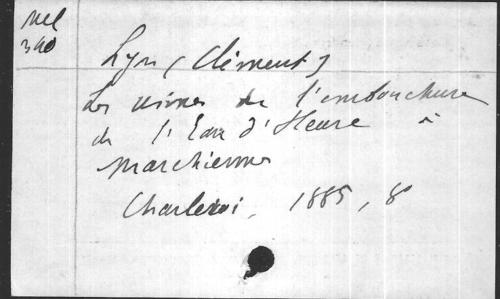 Mel
340
Lyon (Clément)
Les usines de l'embouchure
de l'Eau d'Heure à
Marchienne
Charleroi, 1885, 8°